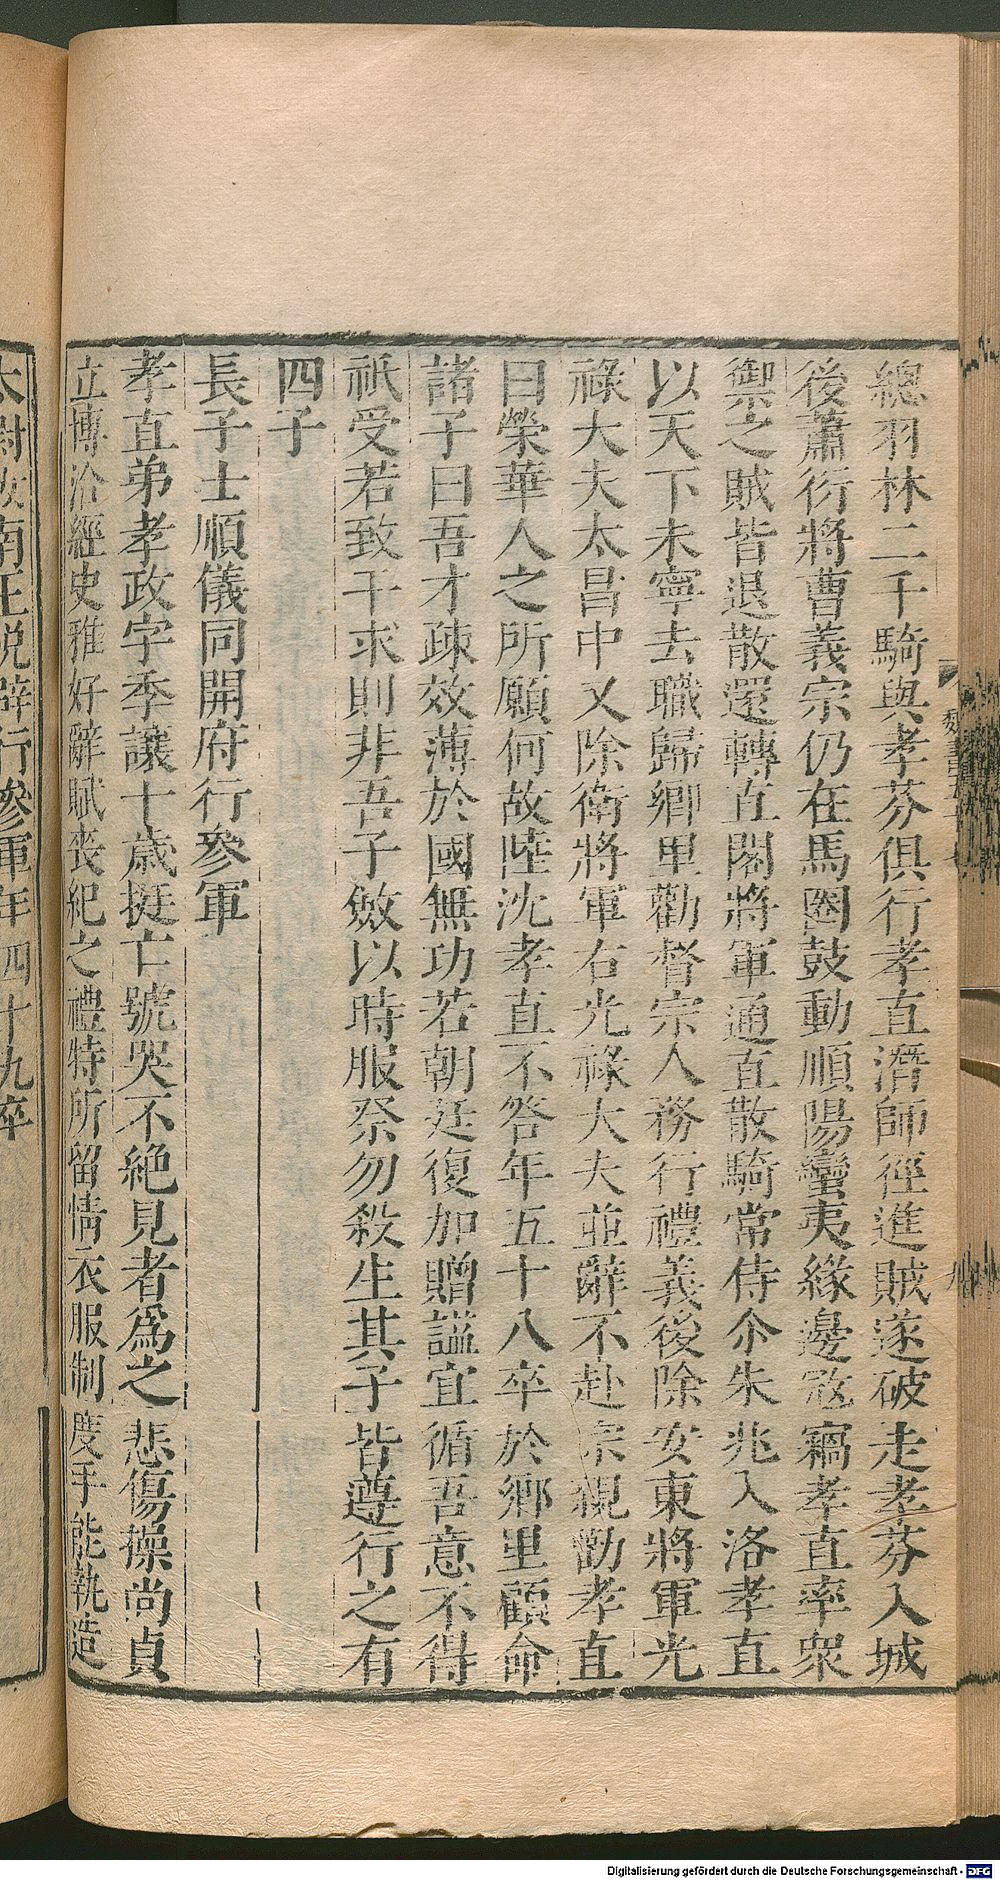 總羽林二千騎與孝芬俱行孝直潛師徑進賊遂破走孝芬入城
後蕭衍將曹義宗仍在馬圈鼓動順陽蠻夷緣邊寇竊孝直率衆
禦之賊皆退散還轉直閣將軍通直散騎常侍尒朱兆入洛孝直
以天下未寧去職歸鄉里勸督宗人務行禮義後除安東將軍光
祿大夫太昌中又除衛將軍右光祿大夫並辭不赴宗親勸孝直
曰榮華人之所願何故陸沈孝直不答年五十八卒於鄉里顧命
諸子曰吾才疎效薄於國無功若朝廷復加贈諡宜循吾意不得
祇受若致干求則非吾子斂以時服祭勿殺生其子皆遵行之有
四子
長子士順儀同開府行參軍
孝直弟孝政字季讓十歲挺亡號哭不絶見者爲之悲傷操尚貞
立博洽經史雅好辭賦喪紀之禮特所留情衣服制度手能執造
太尉汝南王悅辟行參軍年四十九卒
魏書
九
Digitalisierung gefördert durch die Deutsche Forschungsgemeinschaft - DFG